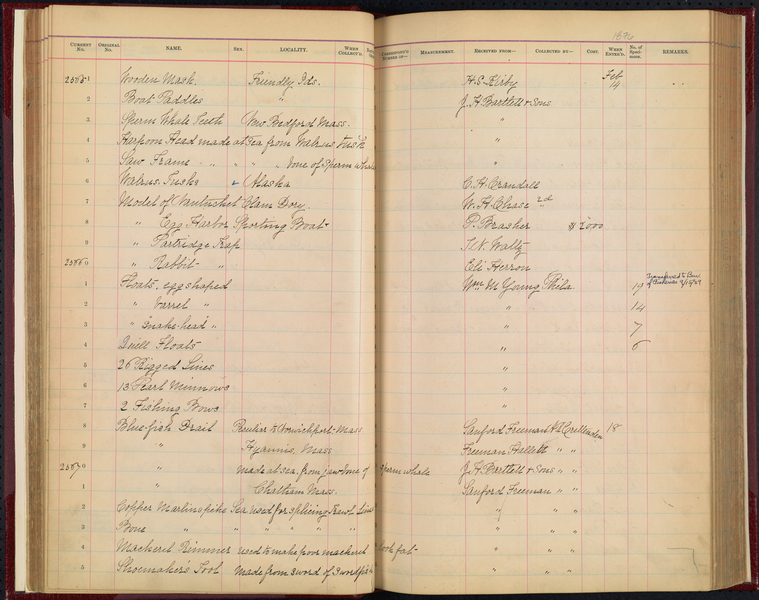 1876
CURRENT No. ORIGINAL No. NAME. SEX. LOCALITY. WHEN COLLECT'D. CORRESPOND'G NUMBER OF— MEASUREMENT. RECEIVED FROM— COLLECTED BY— COST. WHEN ENTER'D. No. of Speci-mens. REMARKS.
Wooden Mask. Friendly Ids. H. S. Kirby Feb 14
2 Boat Paddles " J. H. Bartlett & Sons
3 Sperm Whale Teeth New Bedford Mass. "
4 Harpoon Head made at Sea from Walrus tusk "
5 Saw Frame " " " " bone of Sperm whale "
6 Walrus Tusks Alaska C. H. Crandall
7 Model of Nantucket Clam Dory. W. H. Chase 2d
8 " Egg Harbor Sporting Boat P. Brasher
9 " Partridge Trap Waltz
" Rabbit " Eli Herron
1 Floats, egg shaped Wm M Young Phila 19 Transferred to Bur of Fisheries
2 " barrel " " 14
3 " snake-head " " 7
4 Quill Floats " 6
5 26 Rigged Lines "
6 13 Pearl Minnows "
7 2 Fishing Bows "
8 Blue-fish Drail Peculiar to Harwichport Mass Sanford Freeman 18
9 " Hyannis, Mass Freeman Hallett " "
" made at sea, from jaw bone of sperm whale J. H. Bartlett & Sons " "
1 " Chatham Mass. Sanford Freeman " "
2 Copper Marlinspike Sea used for splicing Lines " "
3 Bone " " " " " " " "
4 Mackerel Rimmer used to make poor mackerel look fat " " "
5 Shoemaker's Tool made from sword of Swordfish " " "